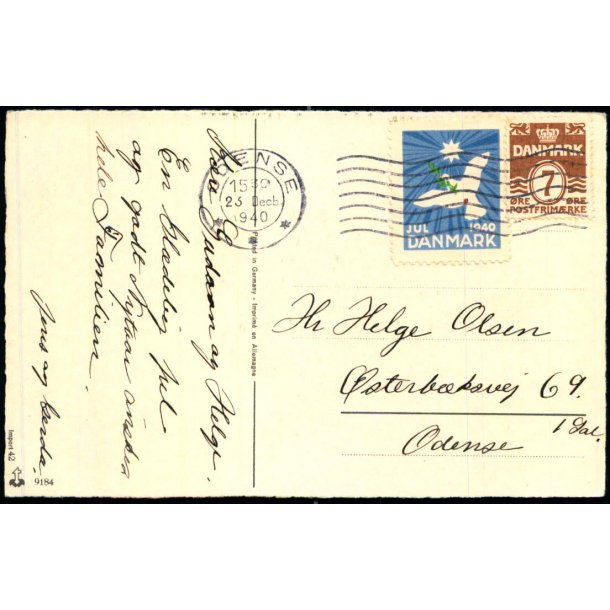 Kære Gudrun og Helge.
En Glædelig Jul
og godt Nytaar ønskes
hele Familien.
Jens og Gerda.
ODENSE
15 30
23 Decb.
1940
JUL 1940
DANMARK
DANMARK
7
ØRE ØRE
POSTFRIMÆRKE
Printed in Germany - Imprimé en Allemagne
Hr Helge Olsen
Østerbæksvej 69.
1 Sal.
Odense
Import 42
9184